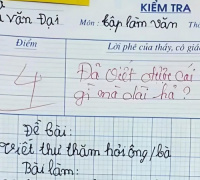 KIỂM TRA
văn Đại Môn: Tập làm văn
Điểm Lời phê của thầy, cô giá
4 Đã viết được cái
gì mà dài hả?
Đề bài:
Viết thư thăm hỏi ông/bà
Bài làm: